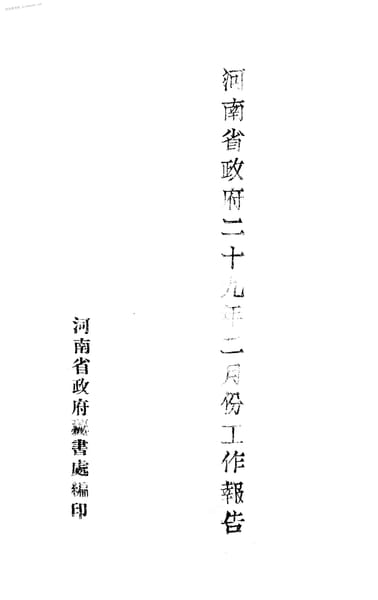 河南省政府二十九年二月份工作報告
河南省政府秘書處編印